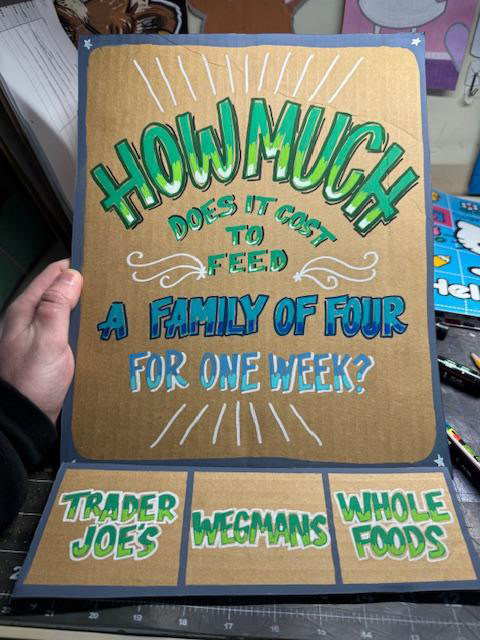 HOW MUCH
DOES IT COST
TO
FEED
A FAMILY OF FOUR
FOR ONE WEEK?
TRADER
JOE'S
WEGMANS
WHOLE
FOODS